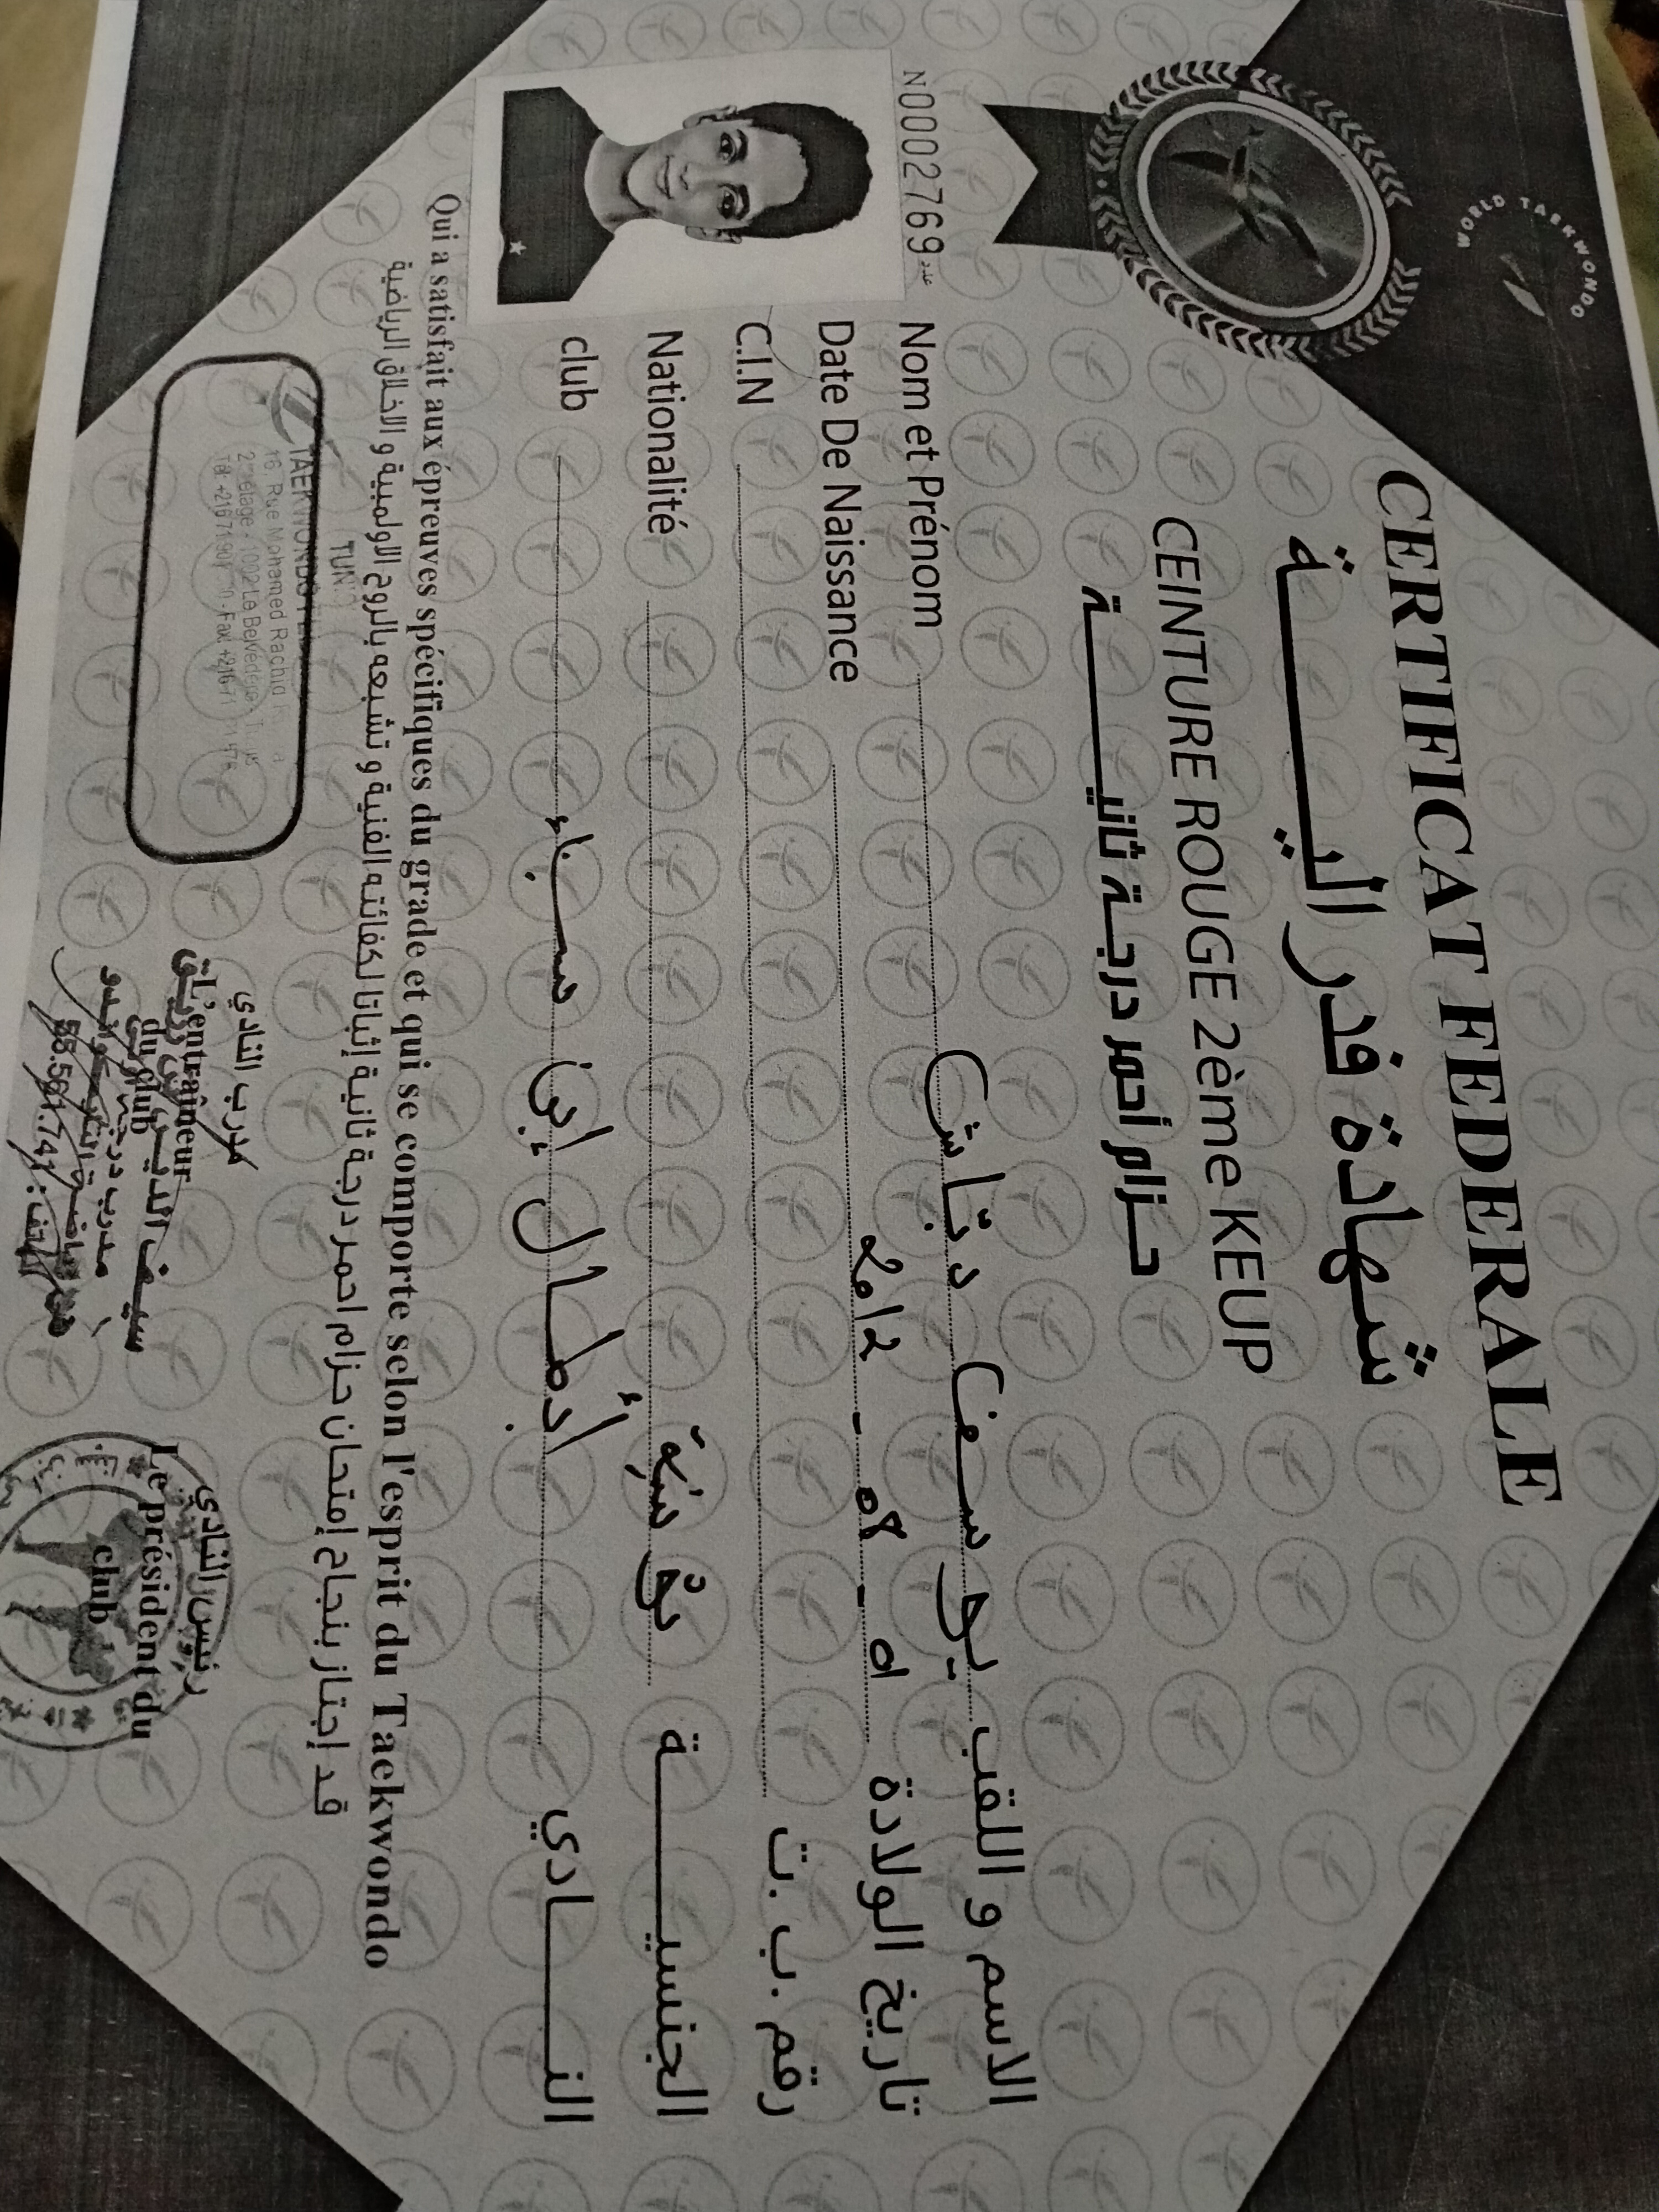 WORLD TAEKWONDO
CERTIFICAT FEDERALE
شهادة فدرالية
CEINTURE ROUGE 2ème KEUP
حزام أحمر درجة ثانية
N00002769 عدد
Nom et Prénom يوسف دباش الاسم و اللقب
Date De Naissance تاريخ الولادة
C.I.N رقم ب.ت.
Nationalité تونسية الجنسية
club أبطال إبن سيناء النادي
Qui a satisfait aux épreuves spécifiques du grade et qui se comporte selon l'esprit du Taekwondo
قد إجتاز بنجاح إمتحان حزام احمر درجة ثانية إثباتا لكفائته الفنية و تشبعه بالروح الاولمبية و الاخلاق الرياضية
TAEKWONDO
16, Rue Mohamed Rachid
2ème étage - 1002 Le Belvédère
مدرب النادي
L'entraîneur
du club
سيف الدين
مدرب درجة
55.561.741
رئيس النادي
Le président du
club